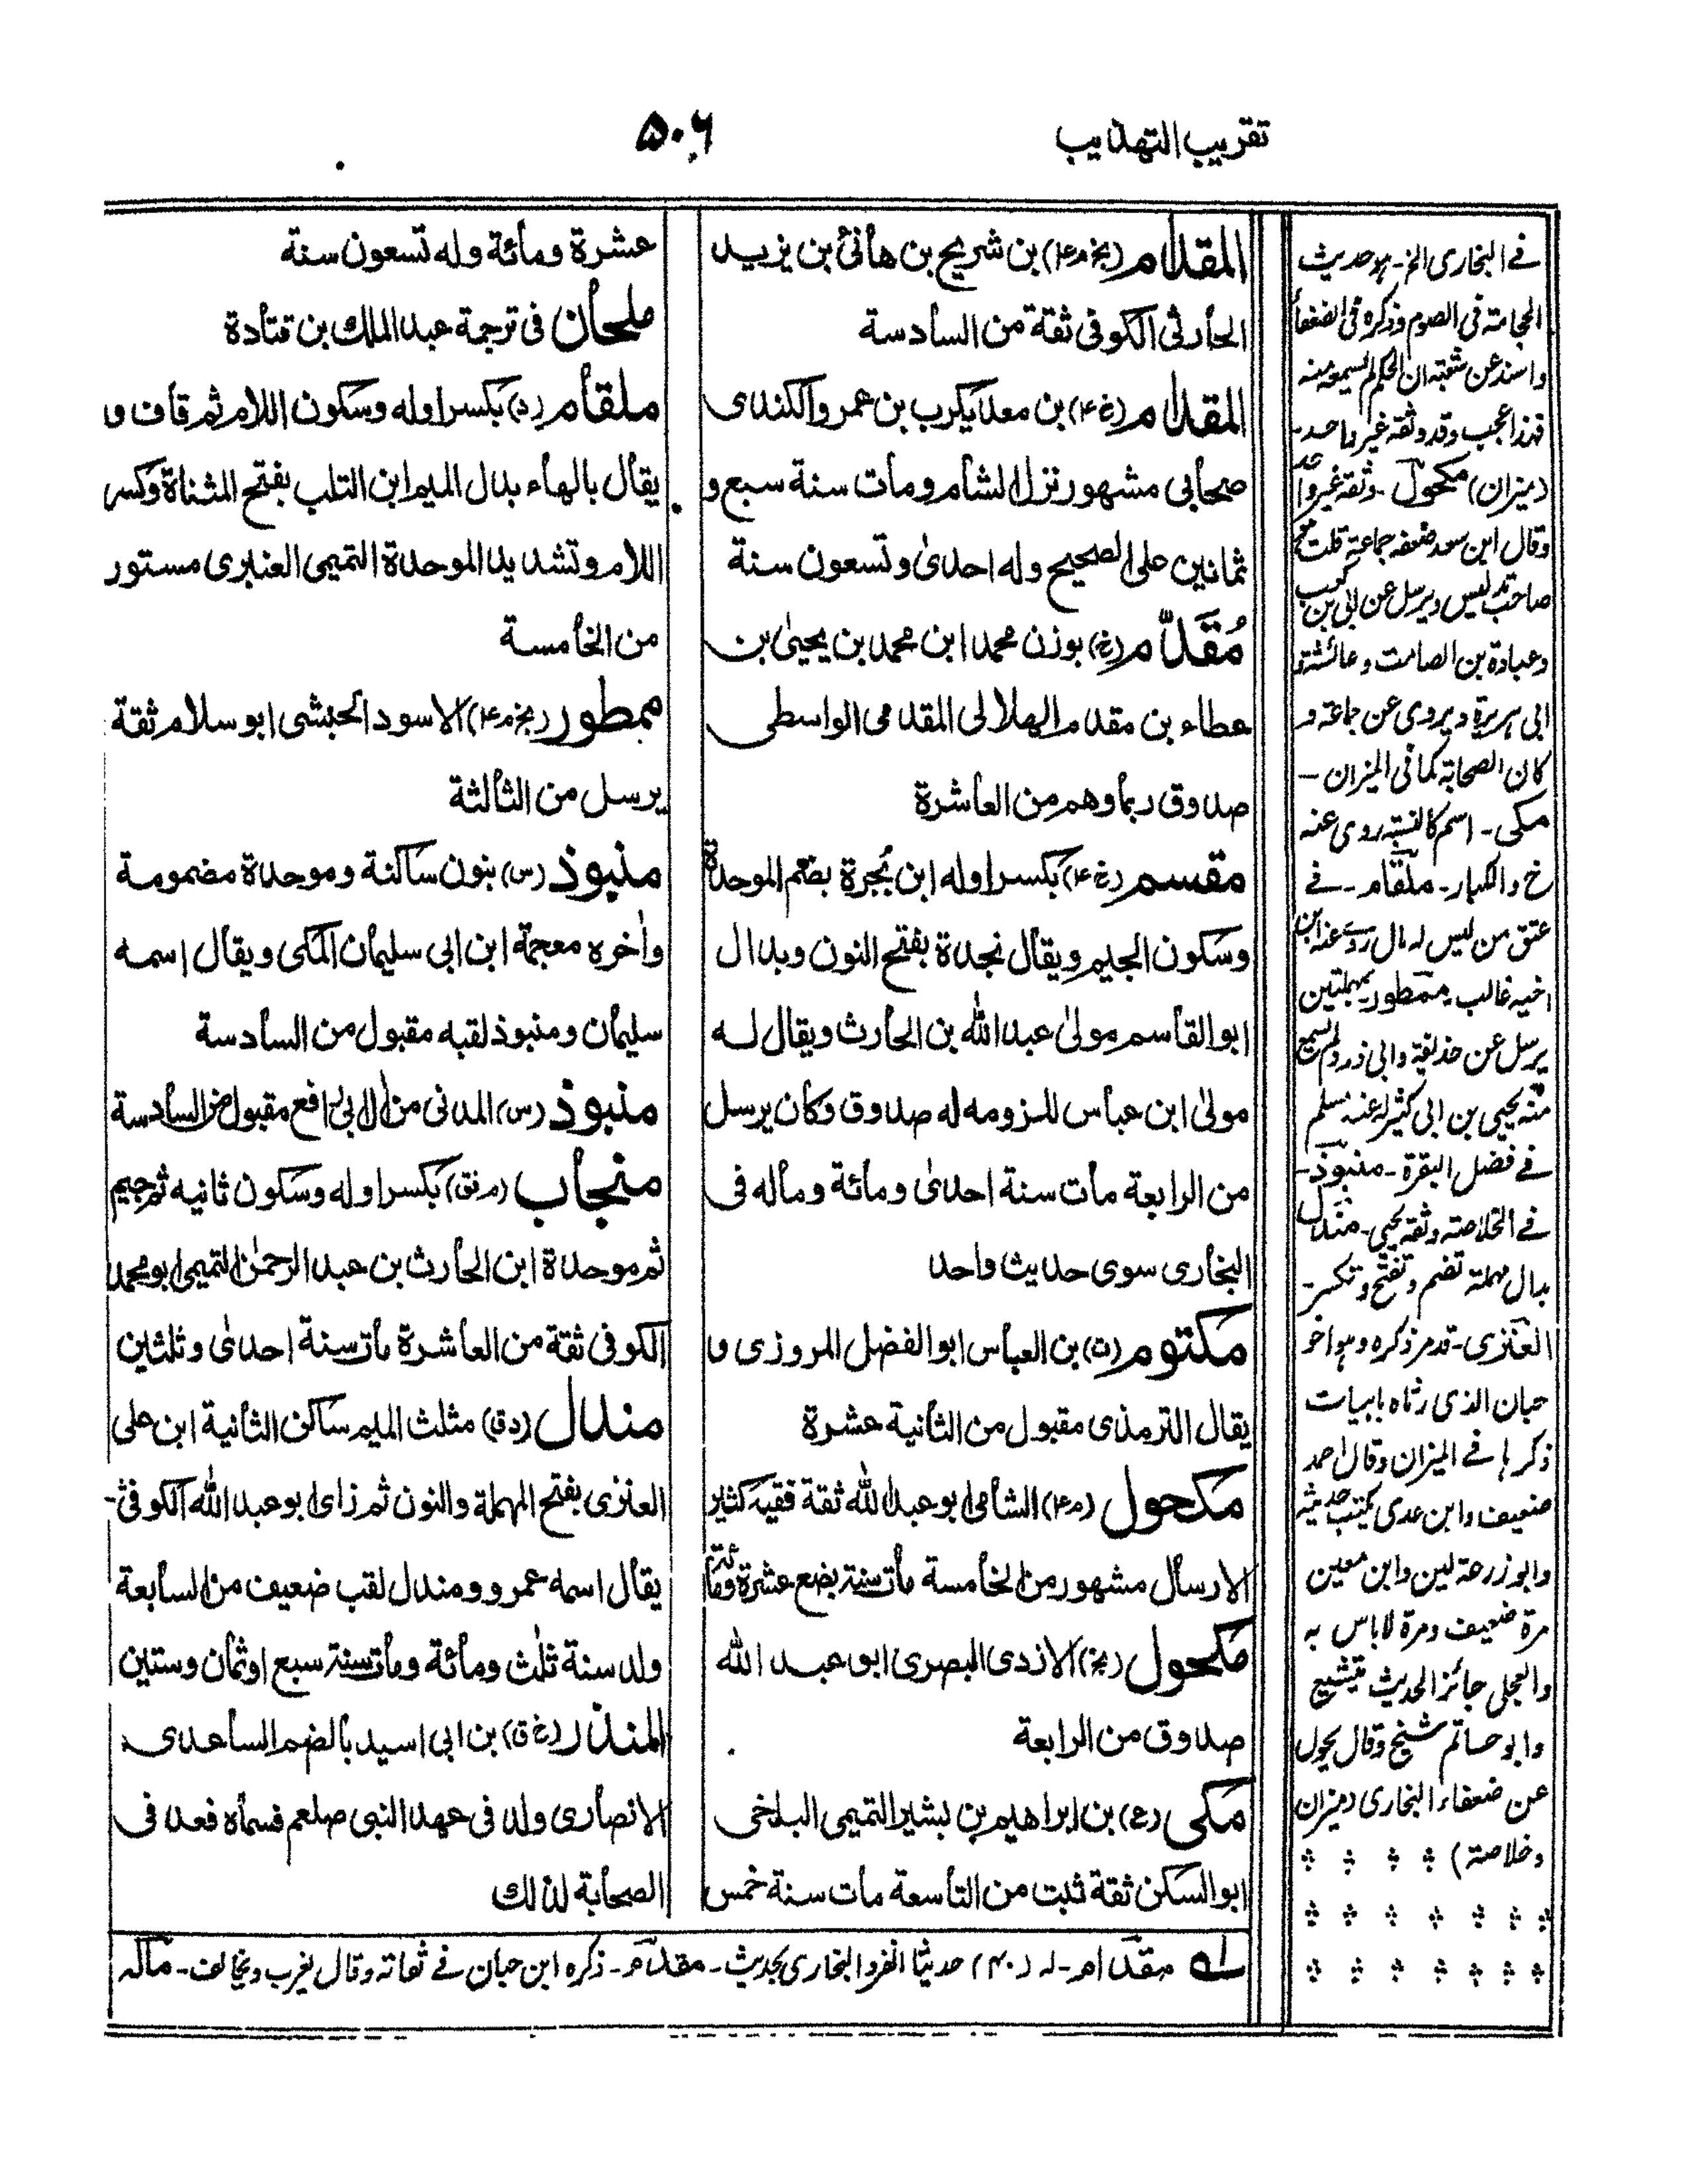 تقریب التهذیب
۵۰۶
المقدام (بخ م ۴) بن شریح بن هانئ بن یزید
الحارثی الکوفی ثقة من السادسة
المقدام (خ ۴) بن معدیکرب بن عمرو الکندی
صحابی مشهور نزل الشام ومات سنة سبع و
ثمانین علی الصحیح وله احدی وتسعون سنة
مُقَدَّم (خ) بوزن محمد ابن محمد بن یحیی بن
عطاء بن مقدم الهلالی المقدمی الواسطی
صدوق ربما وهم من العاشرة
مقسم (خ ۴) بکسر اوله ابن بُجرة بضم الموحدة
وسکون الجیم ویقال نجدة بفتح النون وبدال
ابو القاسم مولی عبد الله بن الحارث ویقال له
مولی ابن عباس للزومه له صدوق وکان یرسل
من الرابعة مات سنة احدی ومائة وماله فی
البخاری سوی حدیث واحد
مکتوم (ت) بن العباس ابو الفضل المروزی و
یقال الترمذی مقبول من الثانیة عشرة
مکحول (م ۴) الشامی ابو عبد الله ثقة فقیه کثیر
الارسال مشهور من الخامسة مات سنة بضع عشرة ومائة
مکحول (بخ) الازدی البصری ابو عبد الله
صدوق من الرابعة
مکی (ع) بن ابراهیم بن بشیر التمیمی البلخی
ابو السکن ثقة ثبت من التاسعة مات سنة خمس
عشرة ومائة وله تسعون سنة
ملحان فی ترجمة عبد الملك بن قتادة
ملقام (د) بکسر اوله وسکون اللام ثم قاف و
یقال بالهاء بدل المیم ابن التلب بفتح المثناة وکسر
اللام وتشدید الموحدة التمیمی العنبری مستور
من الخامسة
ممطور (بخ م ۴) الاسود الحبشی ابو سلام ثقة
یرسل من الثالثة
منبوذ (س) بنون ساکنة وموحدة مضمومة
واٰخره معجمة ابن ابی سلیمان المکی ویقال اسمه
سلیمان ومنبوذ لقبه مقبول من السادسة
منبوذ (س) المدنی من اٰل ابی رافع مقبول من السادسة
منجاب (م فق) بکسر اوله وسکون ثانیه ثم جیم
ثم موحدة ابن الحارث بن عبد الرحمٰن التمیمی ابو محمد
الکوفی ثقة من العاشرة مات سنة احدی وثلثین
مندل (دق) مثلث المیم ساکن الثانیة ابن علی
العنزی بفتح المهملة والنون ثم زای ابو عبد الله الکوفی
یقال اسمه عمرو ومندل لقب ضعیف من السابعة
ولد سنة ثلٰث ومائة ومات سنة سبع او ثمان وستین
المنذر (خ ق) بن ابی اسید بالضم الساعدی
الانصاری ولد فی عهد النبی صلعم فسماه فعد فی
الصحابة لذلك
لـه مقدام - له (۴۰) حدیثا انفرد البخاری بحدیث - مقدم - ذکره ابن حبان فے ثقاته وقال یغرب ویخالف - ماله
فے البخاری الخ - هو حدیث
الحجامة فی الصوم وذکره فی الضعفاء
واسند عن شعبة ان الحکم لم یسمعه منه
فهذا عجب وقد وثقه غیر واحد -
(میزان) مکحول - وثقه غیر واحد
وقال ابن سعد ضعفه جماعة قلت هو
صاحب تدلیس ویرسل عن ابی بن کعب
وعبادة بن الصامت وعائشة و
ابی هریرة ویروی عن جماعة و
کان الصحابة کما فی المیزان -
مکی - اسم کالنسبة روی عنه
خ والکبار - ملقام - فے
عتق من لیس له مال روی عنه ابن
اخیه غالب - ممطور بمهملتین
یرسل عن حذیفة وابی ذر ولم یسمع
منه یحیی بن ابی کثیر له عند مسلم
فے فضل البقرة - منبوذ -
فے الخلاصة وثقه یحیی - مندل
بدال مهملة تضم وتفتح وتکسر -
العنزی - قد مر ذکره وهو اخو
حبان الذی رثاه بابیات
ذکرها فے المیزان وقال احمد
ضعیف وابن عدی یکتب حدیثه
وابو زرعة لین وابن معین
مرة ضعیف ومرة لا باس به
والعجلی جائز الحدیث یتشیع
وابو حاتم شیخ وقال یحول
عن ضعفاء البخاری (میزان
وخلاصة)